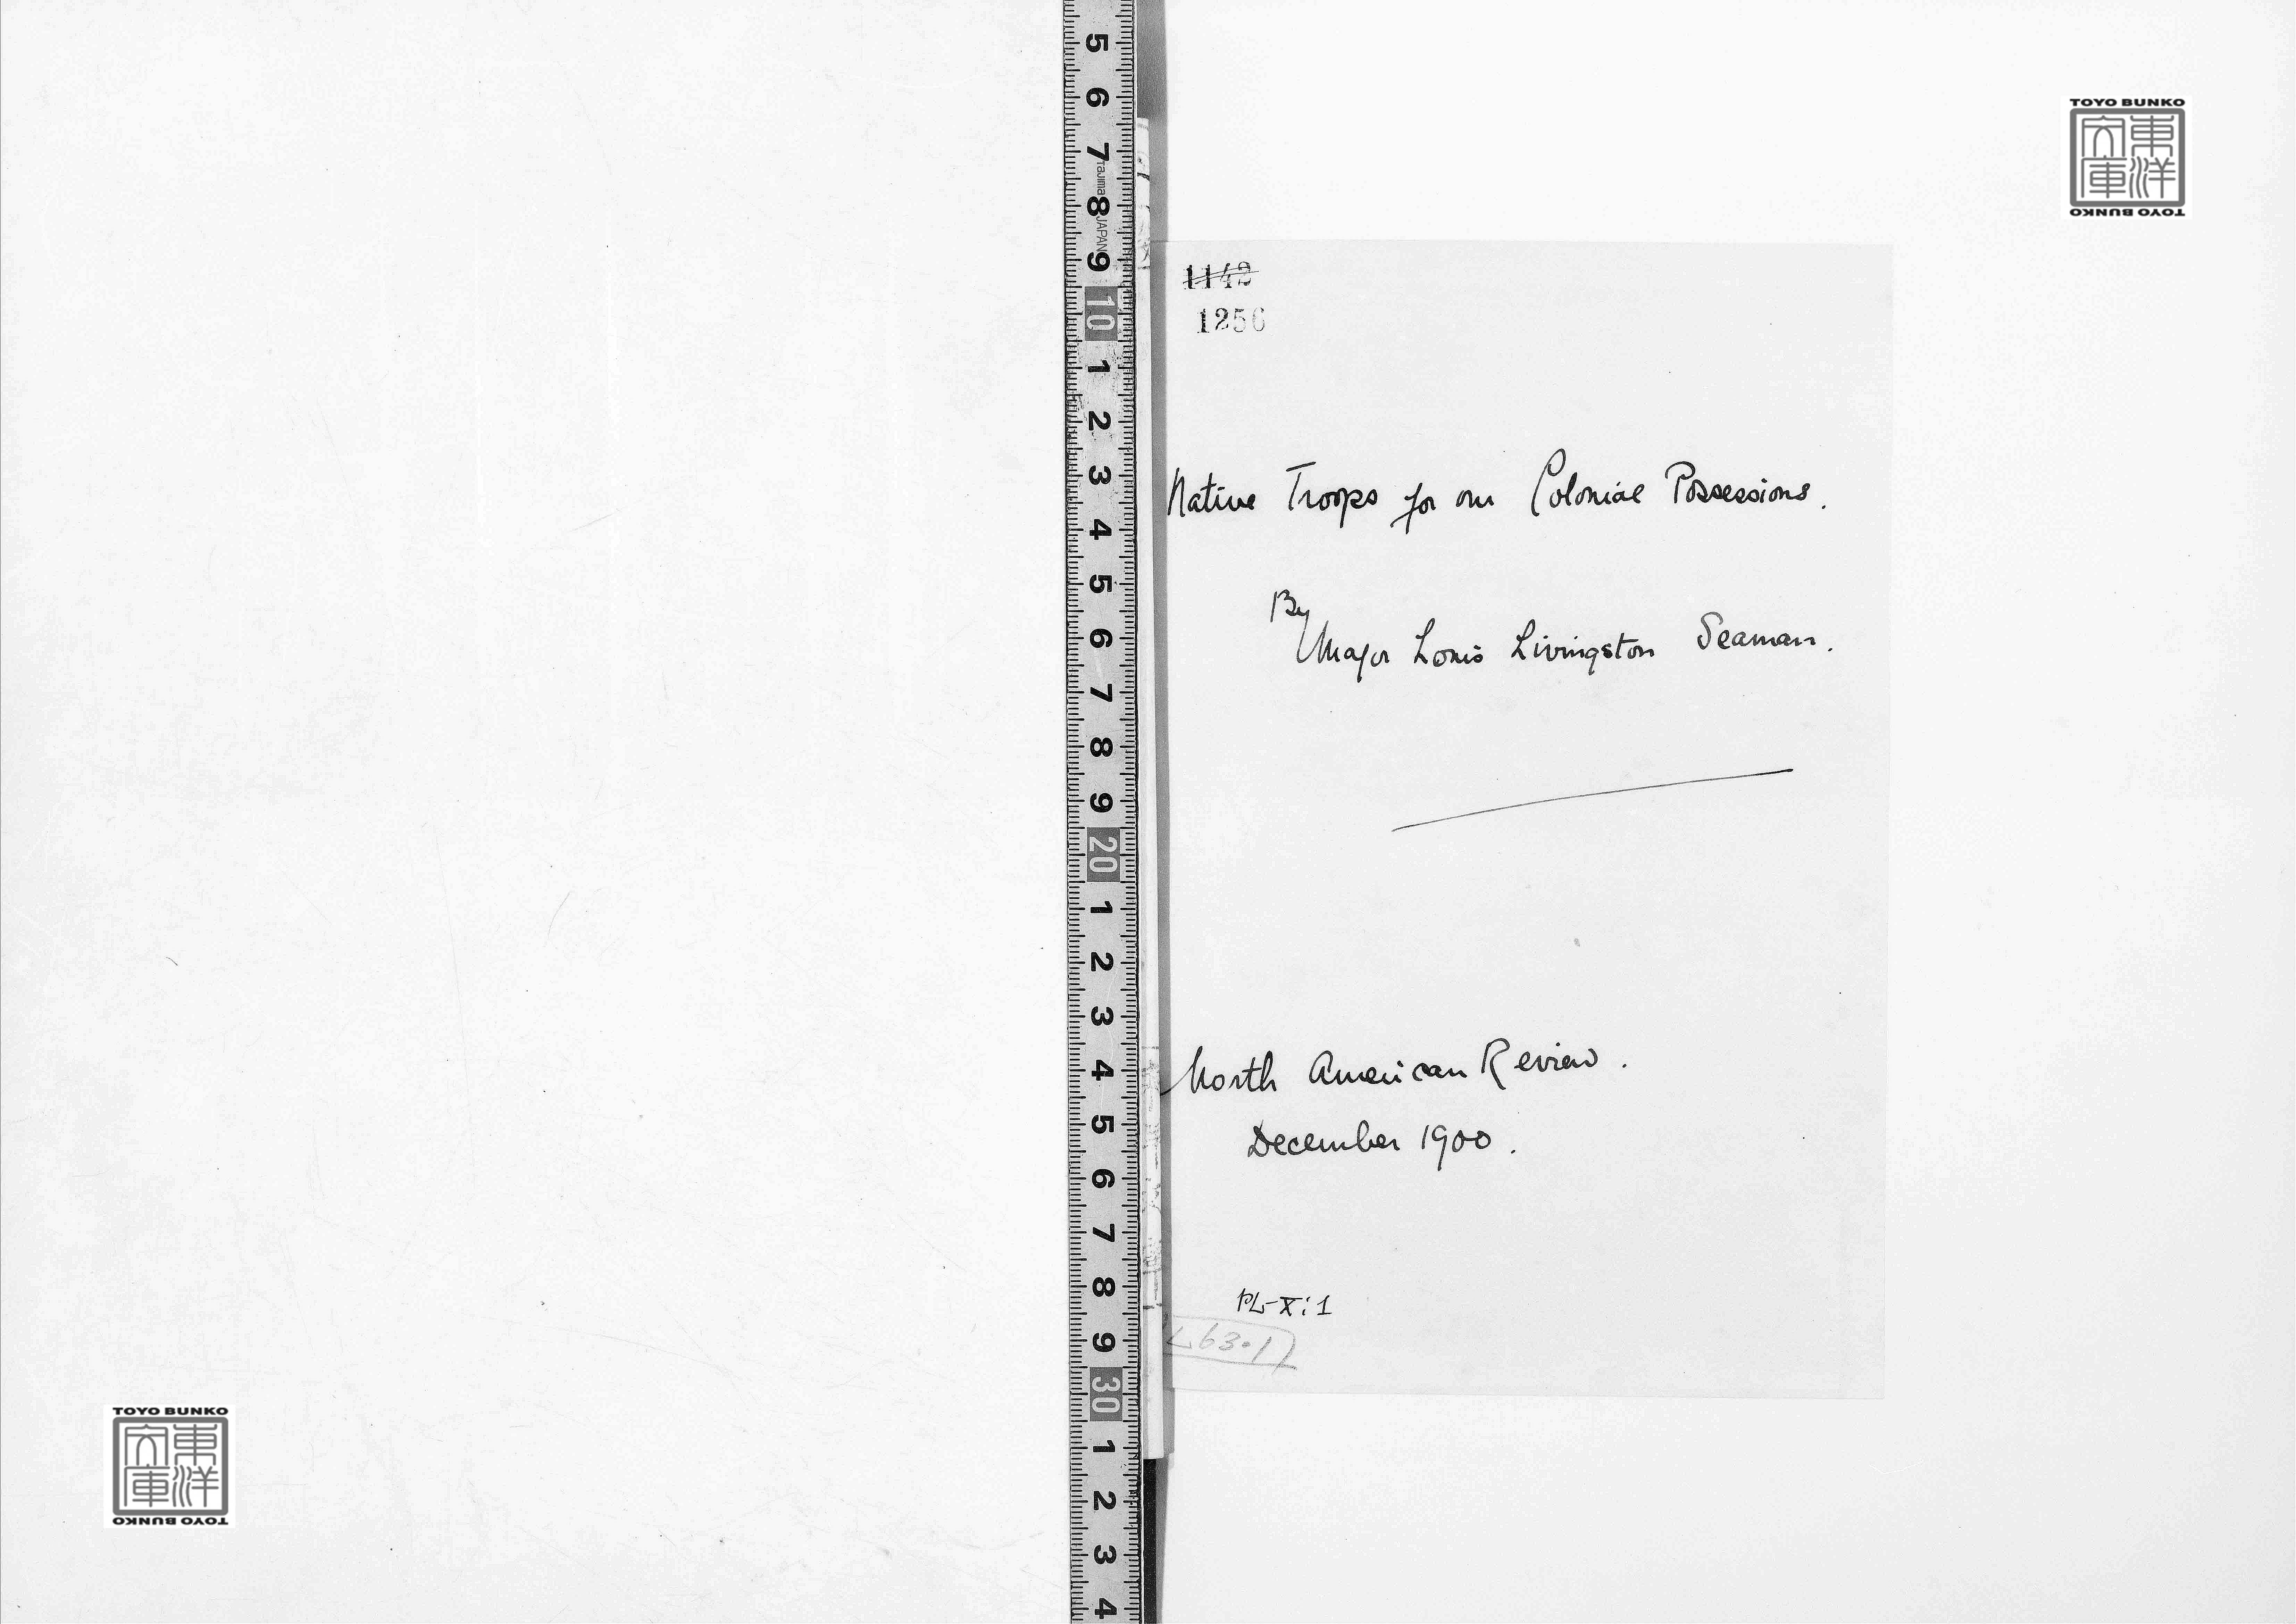 TOYO BUNKO
東洋
文庫
TOYO BUNKO
1142
1256
Native Troops for our Colonial Possessions.
By
Major Louis Livingston Seaman.
North American Review.
December 1900.
PL-X:1
L63.1
5
6
7
Tajima
8
JAPAN
9
10
1
2
3
4
5
6
7
8
9
20
1
2
3
4
5
6
7
8
9
30
1
2
3
4
TOYO BUNKO
東洋
文庫
TOYO BUNKO